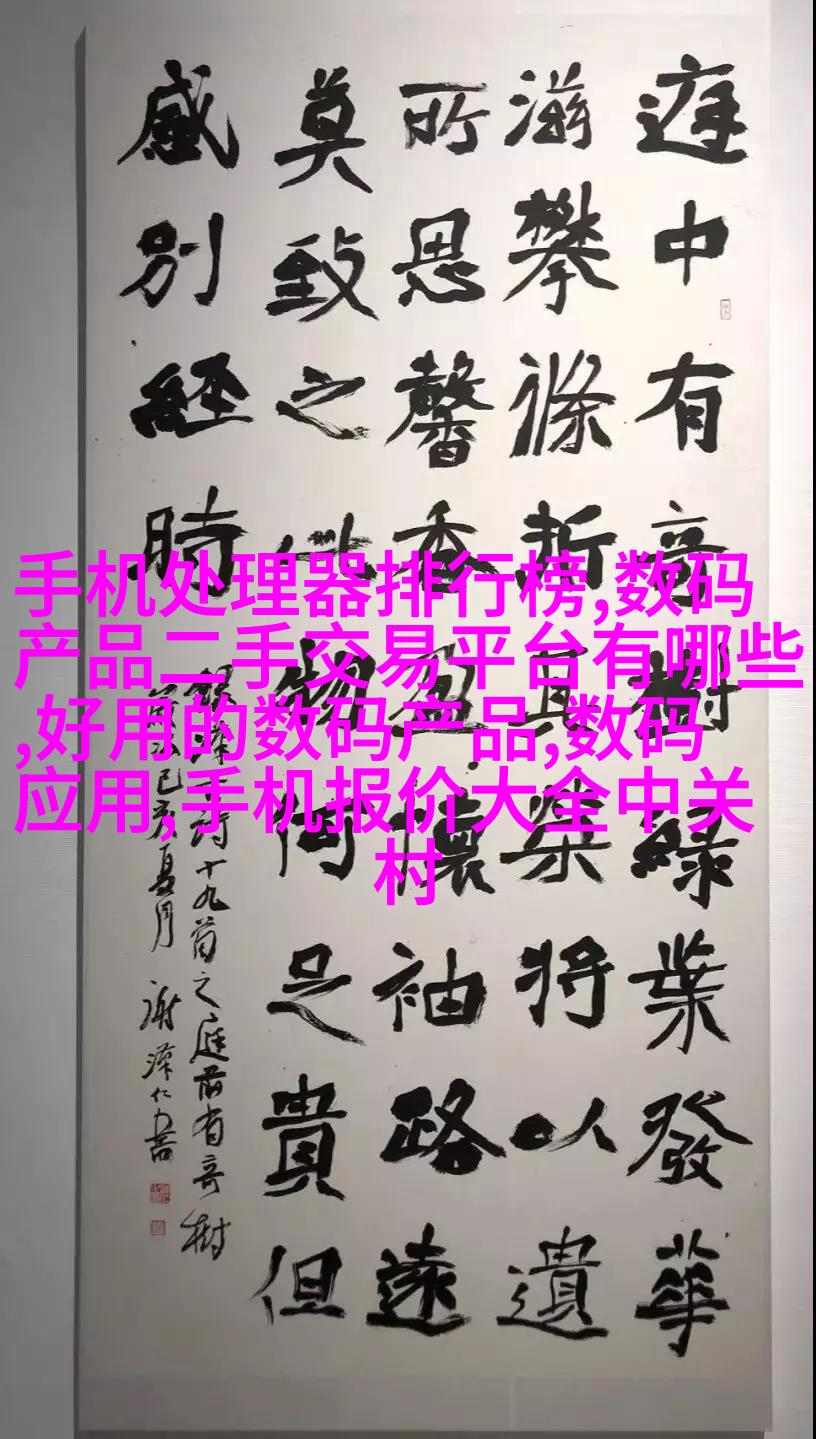 庭中有奇樹綠葉發華
滋攀條折其榮將以遺
所思馨香盈懷袖路遠
莫致之此物何足貴但
感別經時
詩十九首之庭前有奇樹
己亥夏月 謝澤仁書
手机处理器排行榜,数码
产品二手交易平台有哪些
,好用的数码产品,数码
应用,手机报价大全中关
村